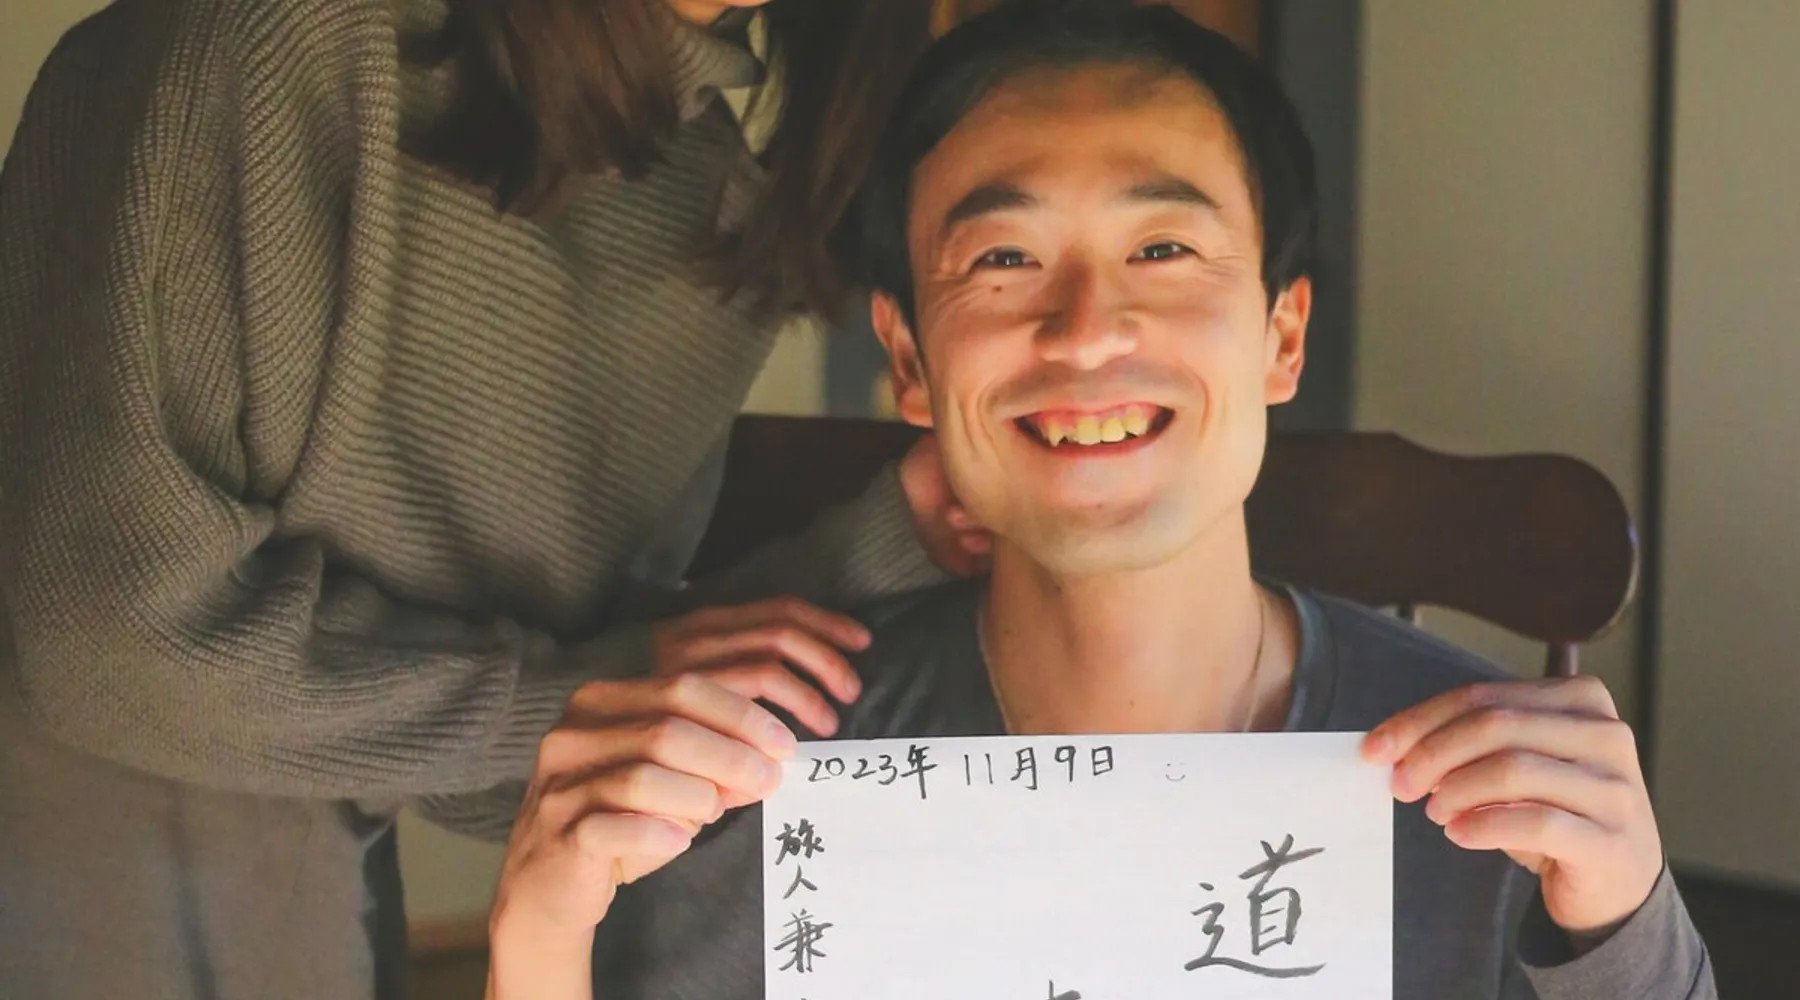 2023年 11月9日
道
旅人兼